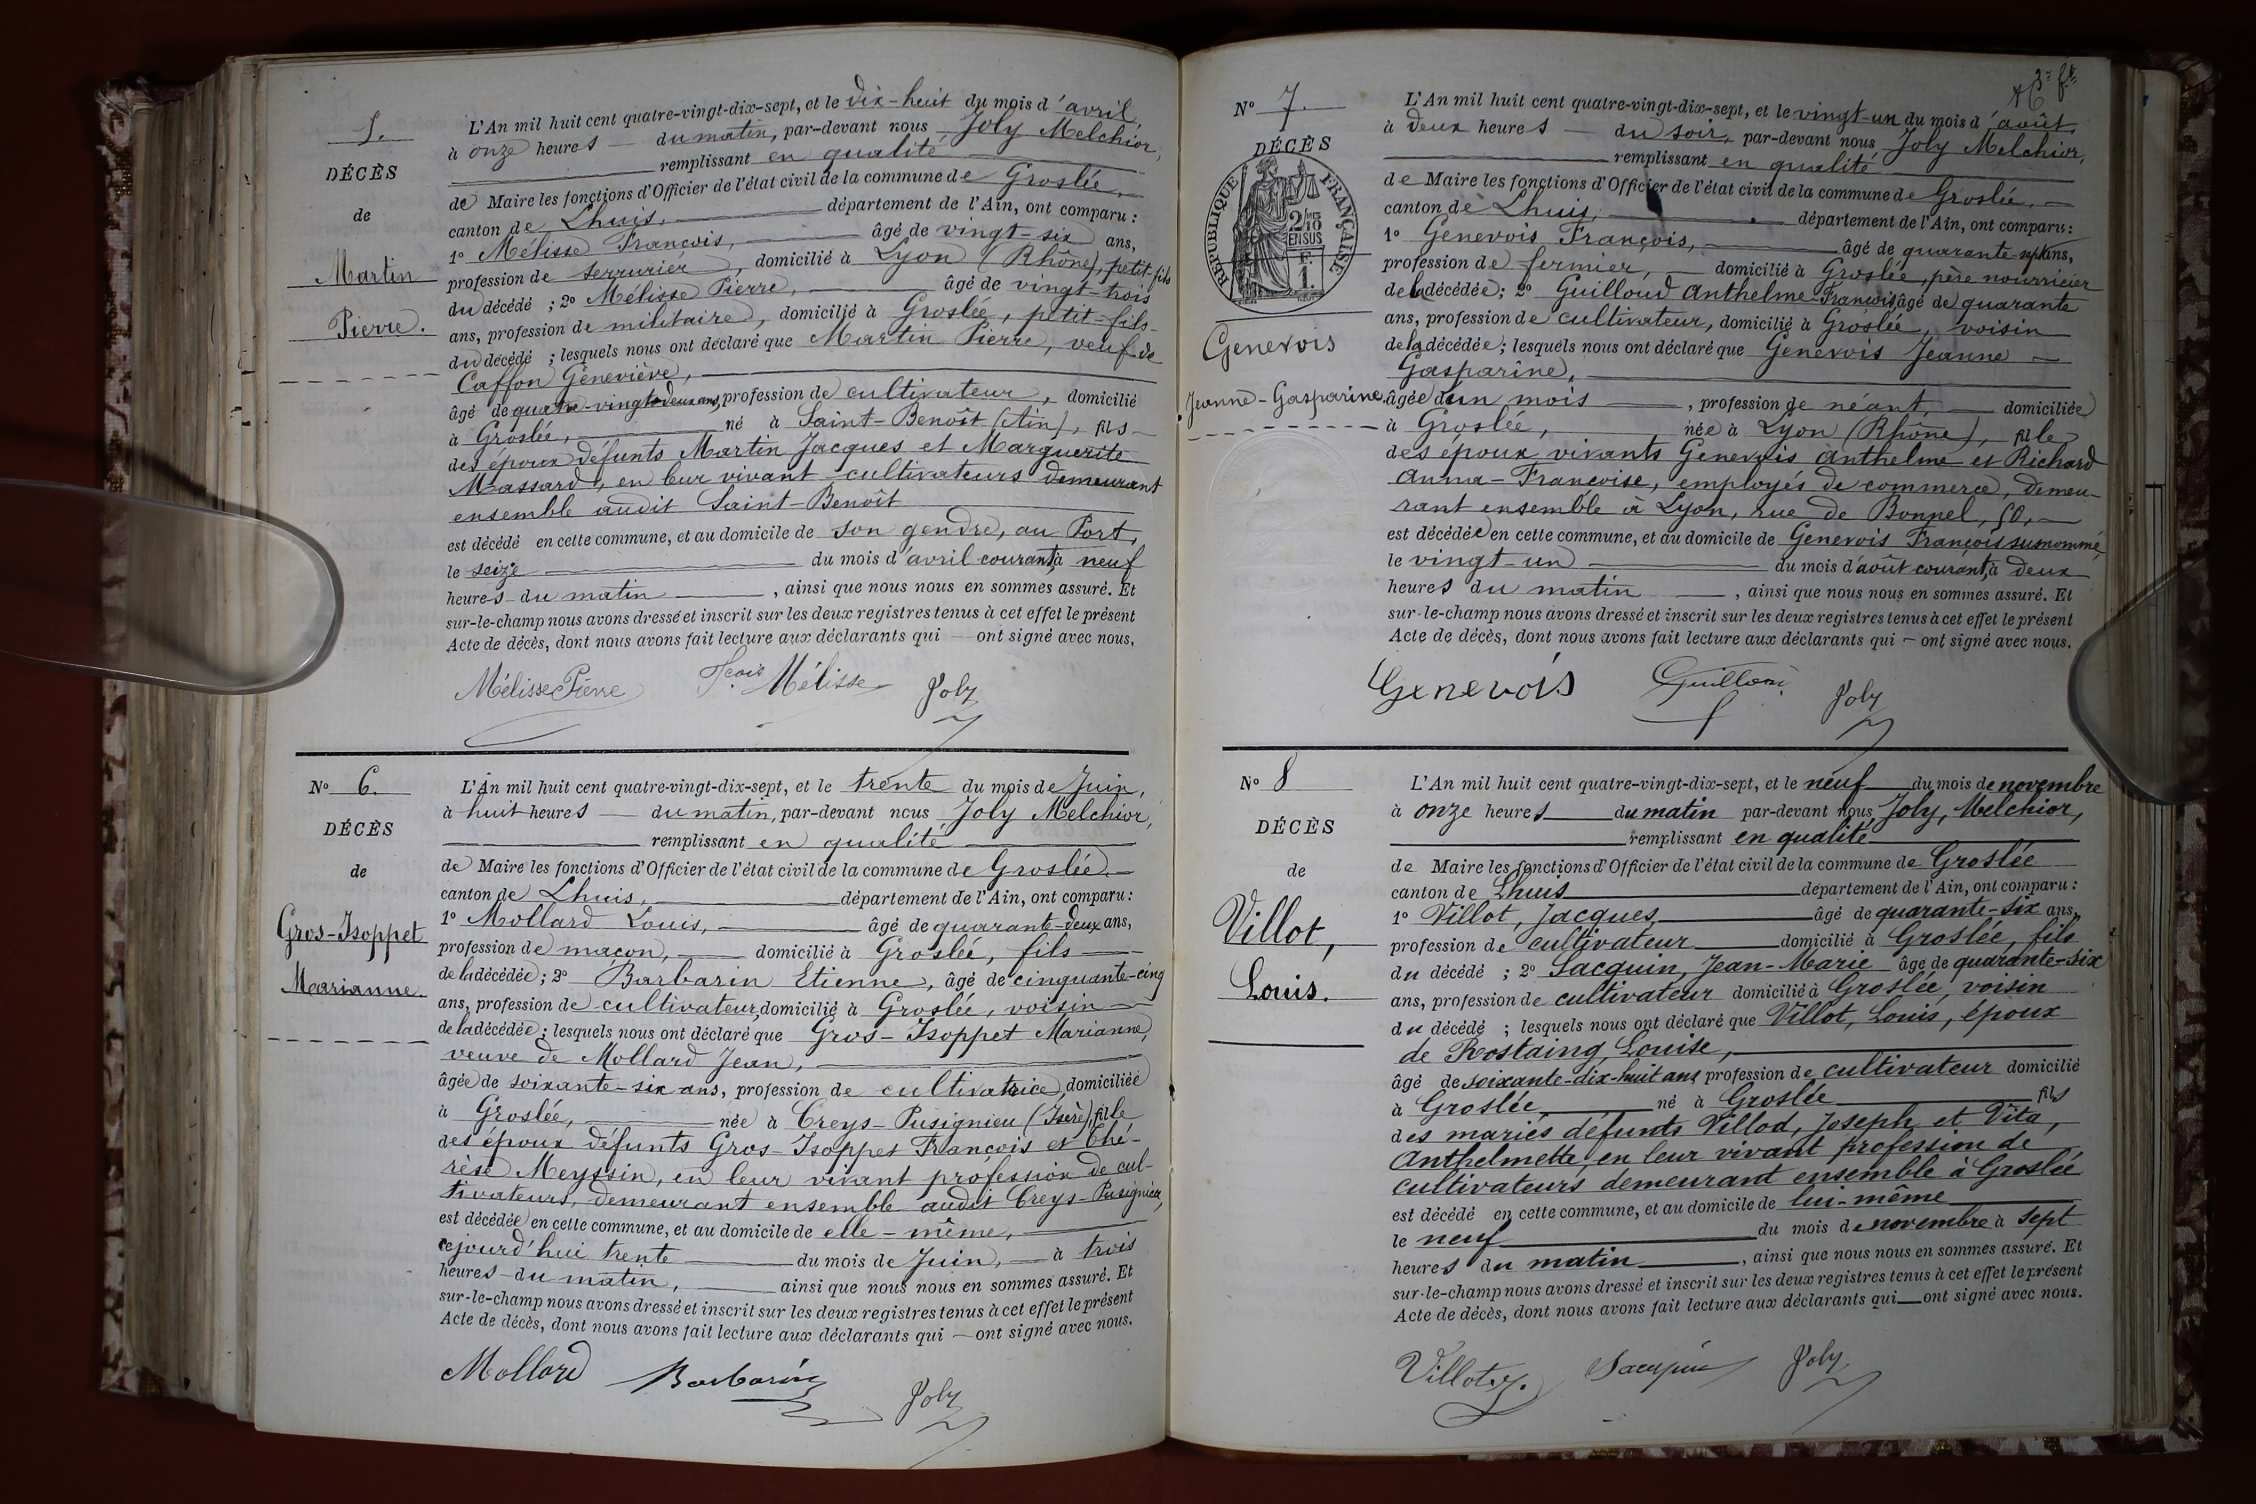 5.
DÉCÈS
de
Martin
Pierre.
L'An mil huit cent quatre-vingt-dix-sept, et le dix-huit du mois d'avril,
à onze heures du matin, par-devant nous Joly Melchior,
remplissant en qualité
de Maire les fonctions d'Officier de l'état civil de la commune de Groslée,
canton de Lhuis, département de l'Ain, ont comparu :
1º Mélisse François, âgé de vingt-six ans,
profession de serrurier, domicilié à Lyon (Rhône), petit fils
du décédé ; 2º Mélisse Pierre, âgé de vingt-trois
ans, profession de militaire, domicilié à Groslée, petit-fils
du décédé ; lesquels nous ont déclaré que Martin Pierre, veuf de
Caffon Geneviève,
âgé de quatre-vingt-deux ans, profession de cultivateur, domicilié
à Groslée, né à Saint-Benoît (Ain), fils
des époux défunts Martin Jacques et Marguerite
Massard, en leur vivant cultivateurs demeurant
ensemble audit Saint-Benoît
est décédé en cette commune, et au domicile de son gendre, au Port,
le seize du mois d'avril courant, à neuf
heures du matin, ainsi que nous nous en sommes assuré. Et
sur-le-champ nous avons dressé et inscrit sur les deux registres tenus à cet effet le présent
Acte de décès, dont nous avons fait lecture aux déclarants qui ont signé avec nous.
Mélisse Pierre Fçois Mélisse Joly
Nº 6.
DÉCÈS
de
Gros-Isoppet
Marianne.
L'An mil huit cent quatre-vingt-dix-sept, et le trente du mois de Juin,
à huit heures du matin, par-devant nous Joly Melchior,
remplissant en qualité
de Maire les fonctions d'Officier de l'état civil de la commune de Groslée.
canton de Lhuis, département de l'Ain, ont comparu :
1º Mollard Louis, âgé de quarante-deux ans,
profession de maçon, domicilié à Groslée, fils
de la décédée ; 2º Barbarin Etienne, âgé de cinquante-cinq
ans, profession de cultivateur, domicilié à Groslée, voisin
de la décédée ; lesquels nous ont déclaré que Gros-Isoppet Marianne,
veuve de Mollard Jean,
âgée de soixante-six ans, profession de cultivatrice, domiciliée
à Groslée, née à Creys-Pusignieu (Isère), fille
des époux défunts Gros-Isoppet François et Thé-
rèse Meyssin, en leur vivant profession de cul-
tivateurs, demeurant ensemble audit Creys-Pusignieu,
est décédée en cette commune, et au domicile de elle-même,
cejourd'hui trente du mois de Juin, à trois
heures du matin, ainsi que nous nous en sommes assuré. Et
sur-le-champ nous avons dressé et inscrit sur les deux registres tenus à cet effet le présent
Acte de décès, dont nous avons fait lecture aux déclarants qui ont signé avec nous.
Mollard Barbarin Joly
Nº 7.
DÉCÈS
RÉPUBLIQUE FRANÇAISE
2/10
EN SUS
F.
1.
Genevois
Jeanne-Gasparine.
L'An mil huit cent quatre-vingt-dix-sept, et le vingt-un du mois d'août,
à deux heures du soir, par-devant nous Joly Melchior,
remplissant en qualité
de Maire les fonctions d'Officier de l'état civil de la commune de Groslée.
canton de Lhuis, département de l'Ain, ont comparu :
1º Genevois François, âgé de quarante-sept ans,
profession de fermier, domicilié à Groslée, père nourricier
de la décédée ; 2º Guilloud Anthelme-François âgé de quarante
ans, profession de cultivateur, domicilié à Groslée, voisin
de la décédée ; lesquels nous ont déclaré que Genevois Jeanne
Gasparine,
âgée d'un mois, profession de néant, domiciliée
à Groslée, née à Lyon (Rhône), fille
des époux vivants Genevois Anthelme et Richard
Anna-Françoise, employés de commerce, demeu-
rant ensemble à Lyon, rue de Bonnel, 50,
est décédée en cette commune, et au domicile de Genevois François susnommé,
le vingt-un du mois d'août courant, à deux
heures du matin, ainsi que nous nous en sommes assuré. Et
sur-le-champ nous avons dressé et inscrit sur les deux registres tenus à cet effet le présent
Acte de décès, dont nous avons fait lecture aux déclarants qui ont signé avec nous.
Genevois Guilloud Joly
Nº 8
DÉCÈS
de
Villot,
Louis.
L'An mil huit cent quatre-vingt-dix-sept, et le neuf du mois de novembre
à onze heures du matin par-devant nous Joly, Melchior,
remplissant en qualité
de Maire les fonctions d'Officier de l'état civil de la commune de Groslée
canton de Lhuis département de l'Ain, ont comparu :
1º Villot, Jacques âgé de quarante-six ans,
profession de cultivateur domicilié à Groslée, fils
du décédé ; 2º Sacquin, Jean-Marie âgé de quarante-six
ans, profession de cultivateur domicilié à Groslée, voisin
du décédé ; lesquels nous ont déclaré que Villot, Louis, époux
de Rostaing, Louise,
âgé de soixante-dix-huit ans profession de cultivateur domicilié
à Groslée, né à Groslée fils
des mariés défunts Villod, Joseph et Vita,
Anthelmette, en leur vivant profession de
cultivateurs demeurant ensemble à Groslée
est décédé en cette commune, et au domicile de lui-même
le neuf du mois de novembre à sept
heures du matin, ainsi que nous nous en sommes assuré. Et
sur-le-champ nous avons dressé et inscrit sur les deux registres tenus à cet effet le présent
Acte de décès, dont nous avons fait lecture aux déclarants qui ont signé avec nous.
Villot J. Sacquin Joly